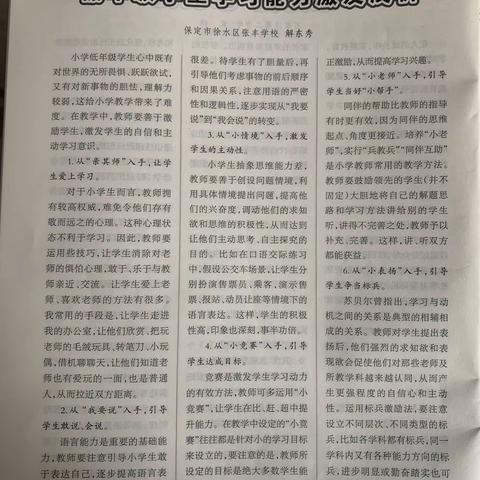 保定市徐水区张丰学校 解东秀
小学低年级学生心中既有
对世界的无所畏惧、跃跃欲试,
又有对新事物的胆怯,理解力
较弱,这给小学教学带来了难
度。在教学中,教师要善于激
励学生,激发学生的自信和主
动学习意识。
1.从“亲其师”入手,让学
生爱上学习。
对于小学生而言,教师拥
有较高权威,难免令他们存有
敬而远之的心理。这种心理状
态不利于学习。因此,教师要
运用些技巧,让学生消除对老
师的惧怕心理,敢于、乐于与教
师亲近、交流。让学生爱上老
师、喜欢老师的方法有很多。
我常用的手段是,让学生走进
我的办公室,让他们欣赏、把玩
老师的毛绒玩具、转笔刀、小玩
偶,借机聊聊天,让他们知道老
师也有爱玩的一面,也是普通
人,从而拉近双方距离。
2.从“我要说”入手,引导
学生敢说、会说。
语言能力是重要的基础能
力,教师要注意引导小学生敢
于表达自己,逐步提高语言表
很差。待学生有了胆量后,再
引导他们考虑事物的前后顺序
和因果关系,注意用语的严密
性和逻辑性,逐步实现从“我要
说”到“我会说”的转变。
3.从“小情境”入手,激发
学生的主动性。
小学生抽象思维能力差,
教师要善于创设问题情境,利
用具体情境提出问题,提高他
们的兴奋度,调动他们的求知
欲和思维的积极性,从而达到
让他们主动思考、自主探究的
目的。比如在口语交际练习
中,假设公交车场景,让学生分
别扮演售票员、乘客,演示售
票、报站、动员让座等情境下的
语言表达。这样,学生的积极
性高,印象也深刻,事半功倍。
4.从“小竞赛”入手,引导
学生达成目标。
竞赛是激发学生学习动力
的有效方法,教师可多运用“小
竞赛”,让学生在比、赶、超中提
升能力。在教学中设定的“小竞
赛”往往都是针对小的学习目标
来设立的,要注意的是,教师所
设定的目标是绝大多数学生能
正激励,从而提高学习兴趣。
5.从“小老师”入手,引导
学生当好“小帮手”。
同伴的帮助比教师的指导
有时更有效,因为同伴的思维
起点、角度更接近。培养“小老
师”,实行“兵教兵”“同伴互助”
是小学教师常用的教学方法。
教师要鼓励领先的学生(并不
固定)大胆地将自己的解题思
路和学习方法讲给别的学生
听,讲得不完善之处,教师予以
补充、完善。这样,讲、听双方
都能获益。
6.从“小表扬”入手,引导
学生争当标兵。
苏贝尔等指出,学习与动
机之间的关系是典型的相辅相
成的关系。教师对学生提出表
扬后,他们强烈的求知欲和表
现欲会促使他们对那些老师及
所教学科越来越认同,从而产
生更强程度的自信心和主动
性。运用标兵激励法,要注意
设立不同层次、不同类型的标
兵,比如各学科都有标兵,同一
学科内又有各种能力方向的标
兵,进步明显或勤奋踏实也可